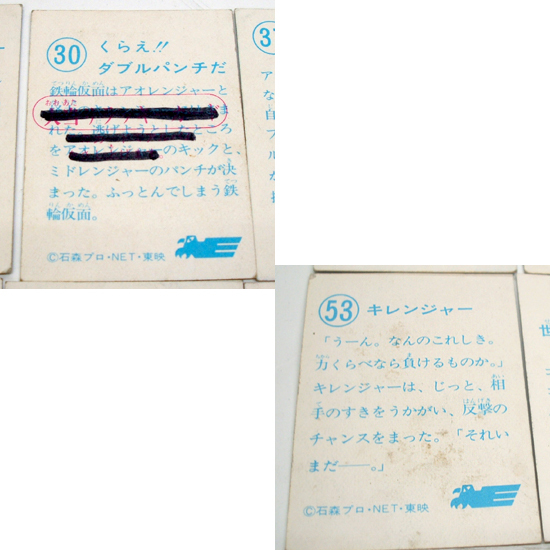 30
くらえ!!
ダブルパンチだ
鉄輪仮面はアオレンジャーと
れた。逃げようとしたところ
をアオレンジャーのキックと、
ミドレンジャーのパンチが決
まった。ふっとんでしまう鉄
輪仮面。
©石森プロ・NET・東映
53 キレンジャー
「うーん。なんのこれしき。
力くらべなら負けるものか。」
キレンジャーは、じっと、相
手のすきをうかがい、反撃の
チャンスをまった。「それい
まだ――。」
©石森プロ・NET・東映